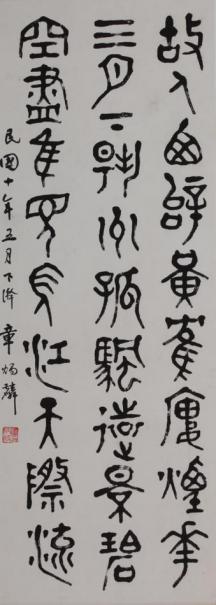 故人西辭黃隺廔煙華
三月下揚州孤颿遠景碧
空盡隹見長江天際流
民國十年五月下 章炳麟